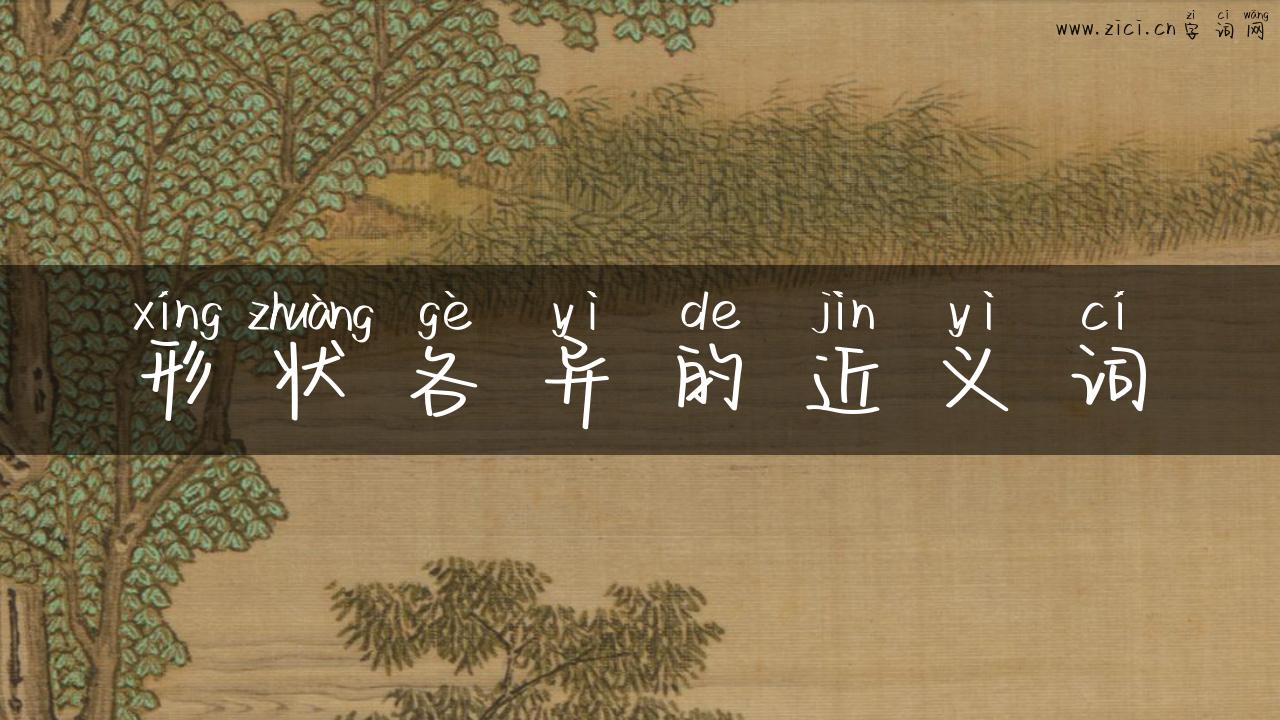 zì cí wǎng
www.zici.cn字词网
xíng zhuàng gè yì de jìn yì cí
形状各异的近义词